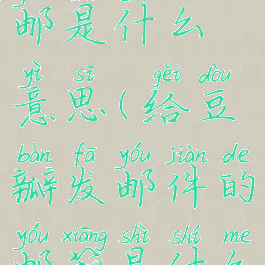 邮是什么
yì sī gěi dòu
意思(给豆
bàn fā yóu jiàn de
瓣发邮件的
yóu xiāng shì shí me
邮箱是什么